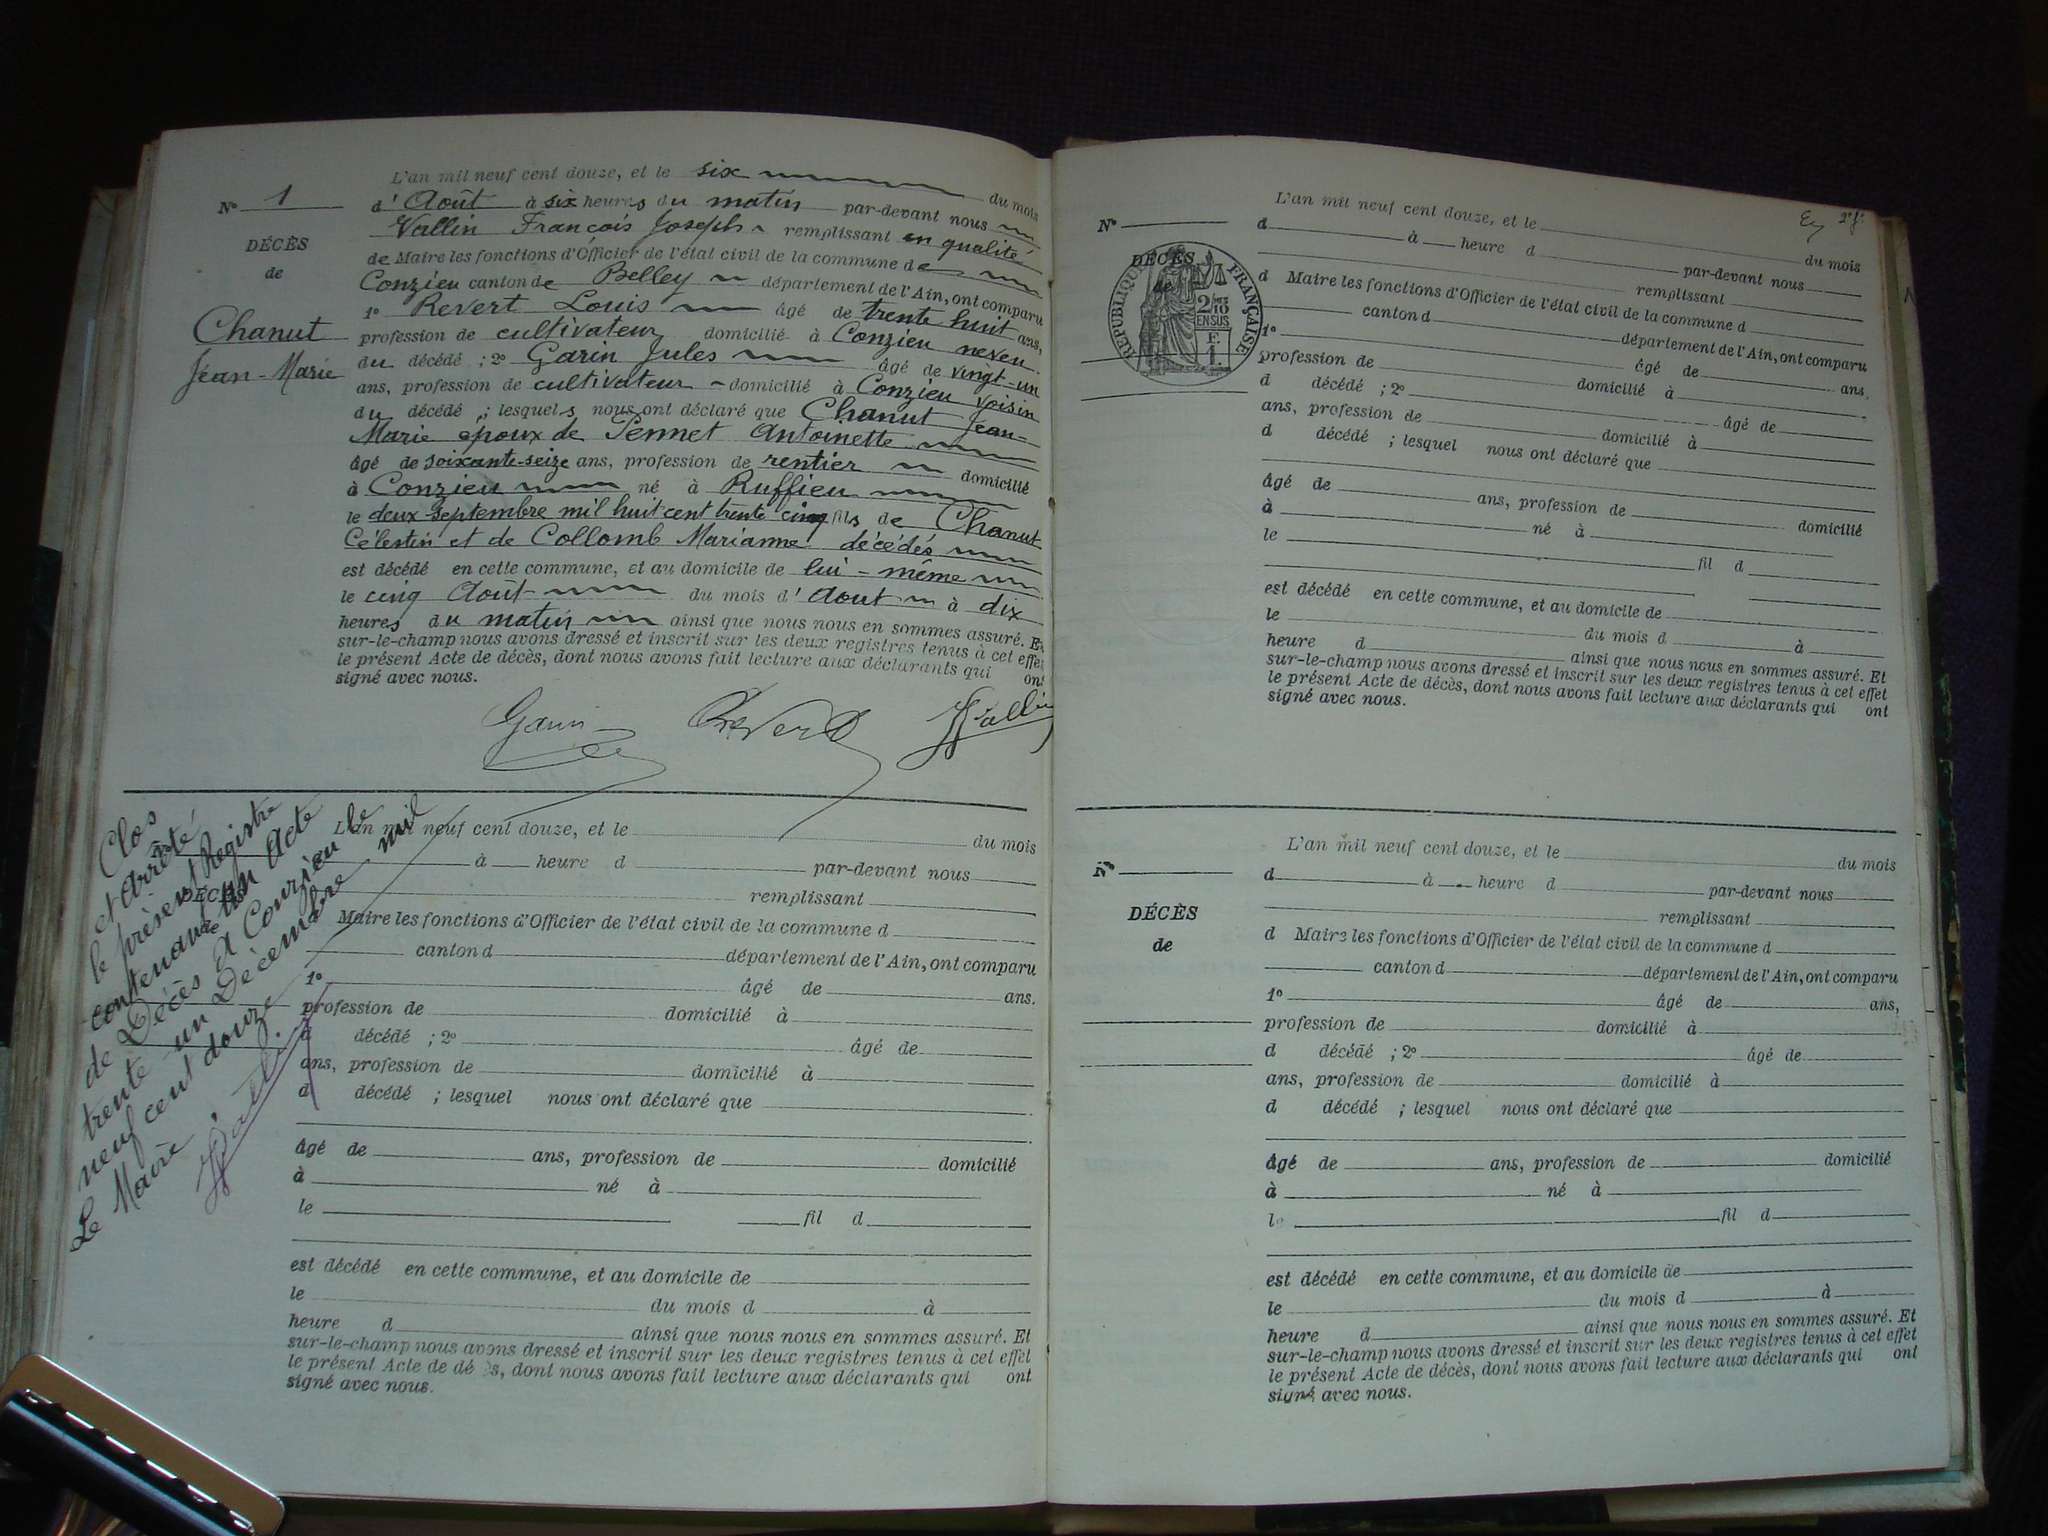 L'an mil neuf cent douze, et le six du mois
N° 1
d'Août à six heures du matin par-devant nous
Vallin François Joseph remplissant en qualité
DÉCÈS
de Maire les fonctions d'Officier de l'état civil de la commune de
de
Conzieu canton de Belley département de l'Ain, ont comparu
1° Revert Louis âgé de trente huit ans,
Chanut
profession de cultivateur domicilié à Conzieu neveu
Jean-Marie
du décédé ; 2° Garin Jules âgé de vingt-un
ans, profession de cultivateur domicilié à Conzieu voisin
du décédé ; lesquels nous ont déclaré que Chanut Jean-
Marie époux de Pennet Antoinette
âgé de soixante-seize ans, profession de rentier domicilié
à Conzieu né à Ruffieu
le deux Septembre mil huit cent trente cinq fils de Chanut
Célestin et de Collomb Marianne décédés
est décédé en cette commune, et au domicile de lui-même
le cinq Août du mois d'Aout à dix
heures du matin ainsi que nous nous en sommes assuré. Et
sur-le-champ nous avons dressé et inscrit sur les deux registres tenus à cet effet
le présent Acte de décès, dont nous avons fait lecture aux déclarants qui ont
signé avec nous.
Garin Revert Vallin
Clos
et arrêté
le présent Registre
contenant un Acte
de Décès A Conzieu le
trente un Décembre mil
neuf cent douze
Le Maire
Vallin
L'an mil neuf cent douze, et le du mois
à heure d par-devant nous
DÉCÈS
remplissant
de
Maire les fonctions d'Officier de l'état civil de la commune d
canton d département de l'Ain, ont comparu
1° âgé de ans.
profession de domicilié à
d décédé ; 2° âgé de
ans, profession de domicilié à
d décédé ; lesquel nous ont déclaré que
âgé de ans, profession de domicilié
à né à
le fil d
est décédé en cette commune, et au domicile de
le du mois d à
heure d ainsi que nous nous en sommes assuré. Et
sur-le-champ nous avons dressé et inscrit sur les deux registres tenus à cet effet
le présent Acte de décès, dont nous avons fait lecture aux déclarants qui ont
signé avec nous.
L'an mil neuf cent douze, et le du mois
N°
d à heure d par-devant nous
DÉCÈS
de
RÉPUBLIQUE FRANÇAISE
2/10 EN SUS
remplissant
d Maire les fonctions d'Officier de l'état civil de la commune d
canton d département de l'Ain, ont comparu
1° âgé de ans.
profession de domicilié à
d décédé ; 2° âgé de
ans, profession de domicilié à
d décédé ; lesquel nous ont déclaré que
âgé de ans, profession de domicilié
à né à
le fil d
est décédé en cette commune, et au domicile de
le du mois d à
heure d ainsi que nous nous en sommes assuré. Et
sur-le-champ nous avons dressé et inscrit sur les deux registres tenus à cet effet
le présent Acte de décès, dont nous avons fait lecture aux déclarants qui ont
signé avec nous.
L'an mil neuf cent douze, et le du mois
N°
d à heure d par-devant nous
remplissant
DÉCÈS
d Maire les fonctions d'Officier de l'état civil de la commune d
de
canton d département de l'Ain, ont comparu
1° âgé de ans,
profession de domicilié à
d décédé ; 2° âgé de
ans, profession de domicilié à
d décédé ; lesquel nous ont déclaré que
âgé de ans, profession de domicilié
à né à
le fil d
est décédé en cette commune, et au domicile de
le du mois d à
heure d ainsi que nous nous en sommes assuré. Et
sur-le-champ nous avons dressé et inscrit sur les deux registres tenus à cet effet
le présent Acte de décès, dont nous avons fait lecture aux déclarants qui ont
signé avec nous.